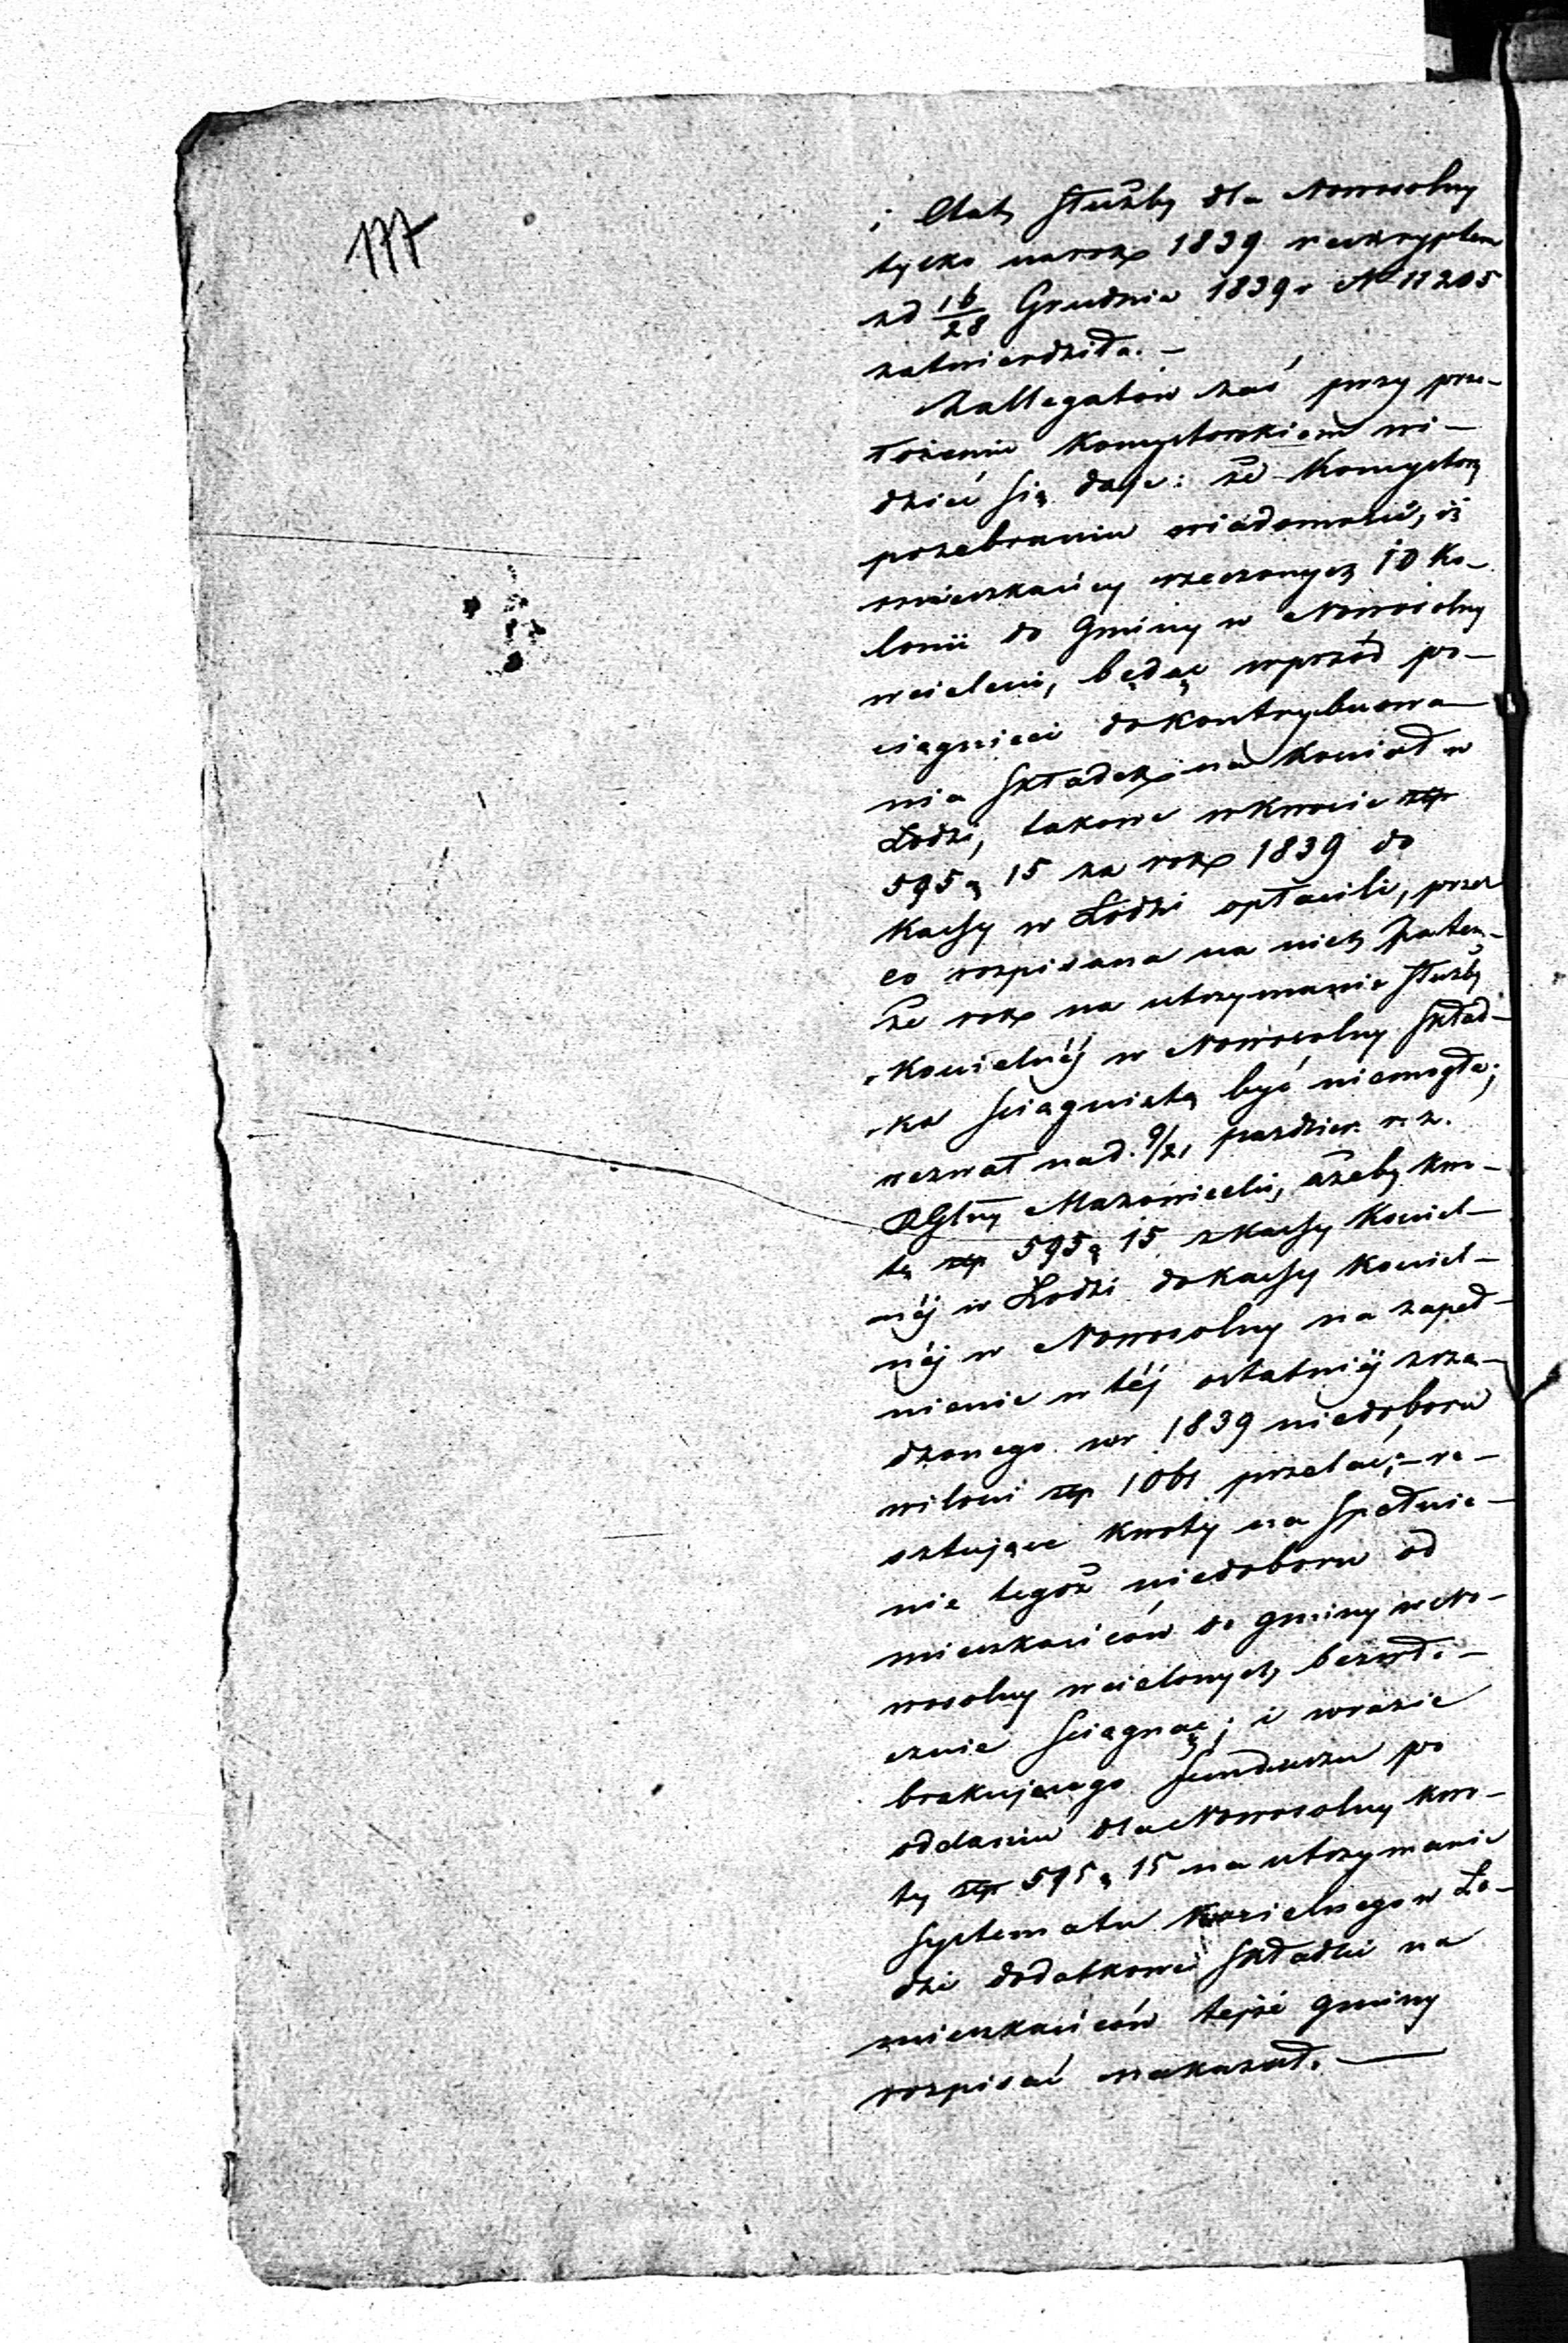 177
i Etat Służby dla Nowosolny
tylko na rok 1839 reskryptem
z d 16/28 Grudnia 1839 r № 11205
zatwierdziła. –
Z allegatów zaś przy prze-
łożeniu Konsystorskiem wi-
dzieć się daje: że Konsystorz
po zebraniu wiadomości, iż
mieszkańcy rzeczonych 10 Ko-
lonii do Gminy w Nowosolny
wcieleni, będąc wprzód po-
ciągnięci do kontrybuowa-
nia składek na Kościoł w
Łodzi, takowe w kwocie złp
595 g 15 za rok 1839 do
Kassy w Łodzi opłacili, przez
co rozpisana na nich za ten-
że rok na utrzymanie służby
Kościelnéj w Nowosolny skład-
ka ściągniętą być niemogła;
wezwał pod d. 9/21 pazdzier. r. z.
RGlny Mazowiecki, ażeby kwo-
tę złp 595 g 15 z kassy Kościel-
néj w Łodzi do kassy Kościel-
néj w Nowosolny na zapeł-
nienie w téj ostatniéj zrzą-
dzonego w r 1839 niedoboru
w ilości złp 1061 przelać; – re-
sztujące kwoty na spełnie-
nie tegoż niedoboru od
mieszkańców do gminy w No-
wosolny wcielonych, bezwło-
cznie ściągnąć; i w razie
brakującego funduszu po
oddaniu dla Nowosolny kwo-
ty złp 595 g 15 na utrzymanie
systematu Kościelnego w Ło-
dzi dodatkowe składki na
mieszkańców tejże gminy
rozpisać nakazał. –